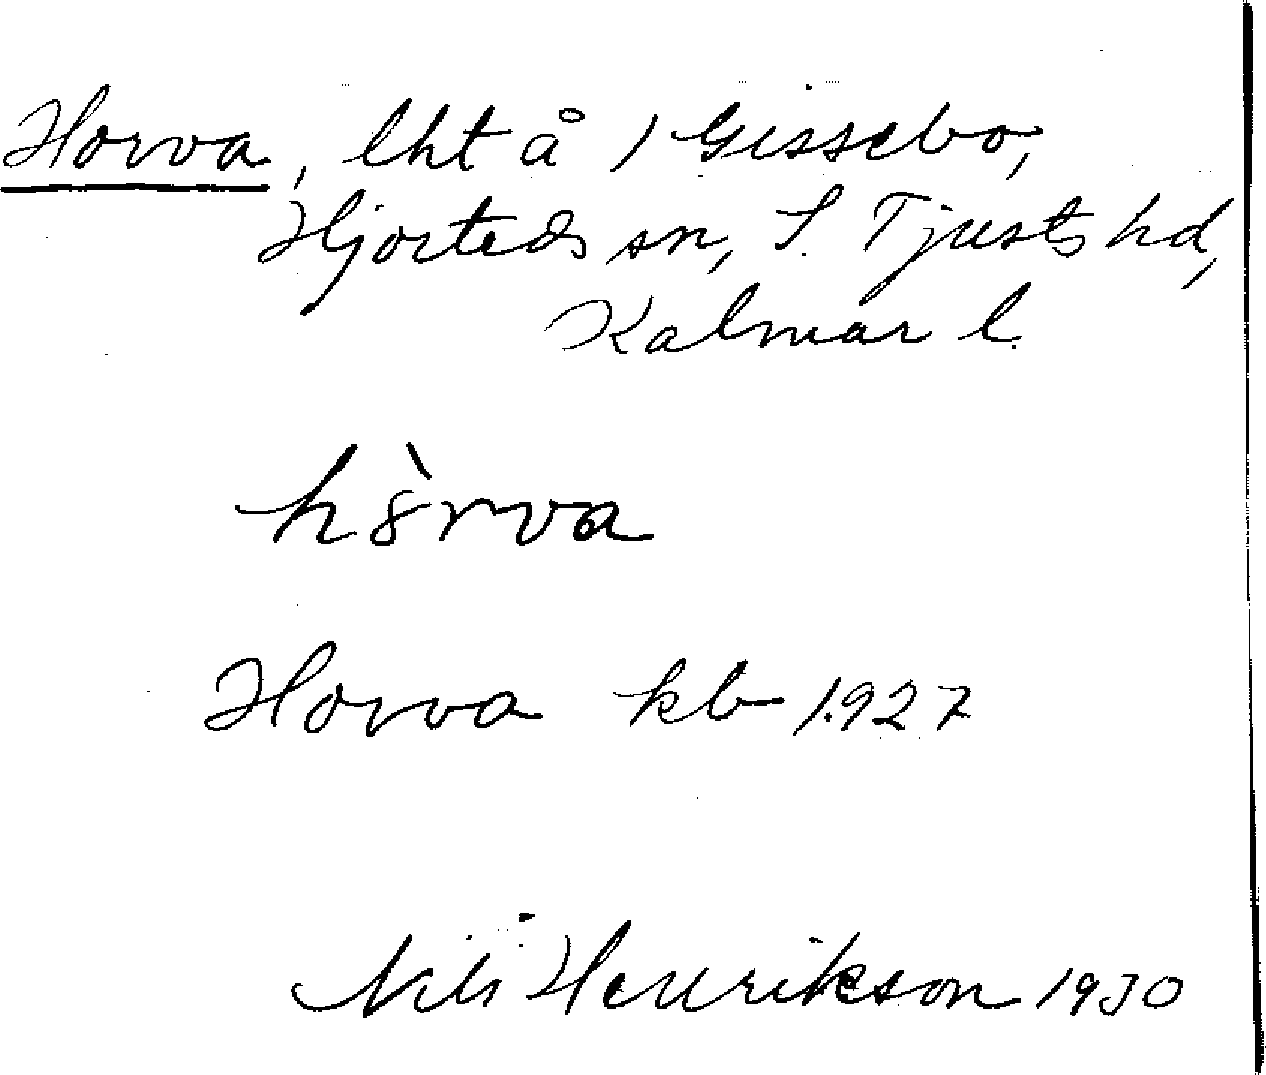 Horva, lht å 1 Gissebo,
Hjorteds sn, S. Tjusts hd,
Kalmar l.
hòrva
Horva kb 1927
Nils Henrikson 1930